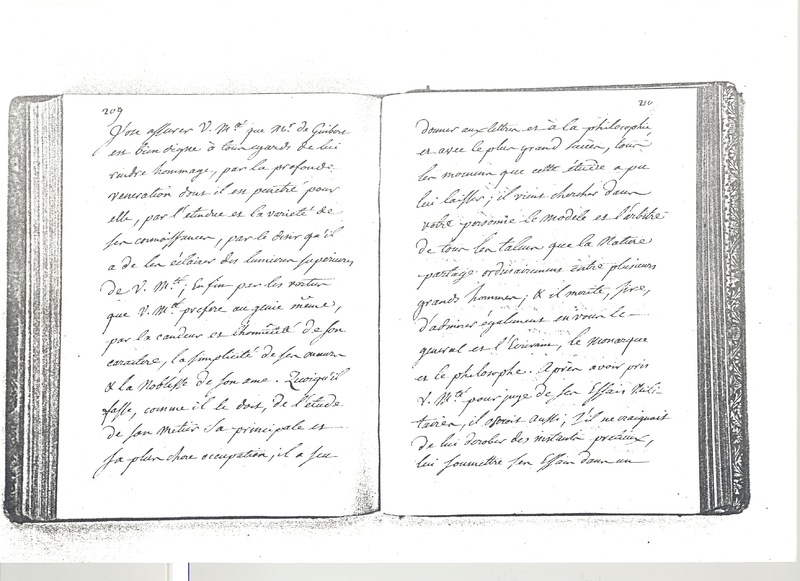 209
J'ose assurer V. Mté que Mr de Guibert
est bien digne à tous egards de lui
rendre hommage, par la profonde
veneration dont il est penetré pour
elle, par l'etendue et la varieté de
ses connoissances, par le desir qu'il
a de les éclairer des lumieres superieures
de V. Mté; Enfin par les vertus
que V. Mté prefere au genie même,
par la candeur et l'honnêteté de son
caractere, la simplicité de ses moeurs
& la Noblesse de son ame. Quoiqu'il
fasse, comme il le doit, de l'étude
de son metier sa principale et
sa plus chere occupation, il a sçu
210
donner aux lettres et à la philosophie,
et avec le plus grand succès, tous
les momens que cette étude a pu
lui laisser; il vient chercher dans
votre personne le Modèle et l'arbitre
de tous les talens que la Nature
partage ordinairement entre plusieurs
grands hommes; & il merite, sire,
d'admirer également en vous le
general et l'Ecrivain, le Monarque
et le philosophe. Après avoir pris
V. Mté pour juge de ses Essais Mili-
taires, il oseroit aussi, s'il ne craignait
de lui derober des instants précieux,
lui soumettre ses Essais dans un